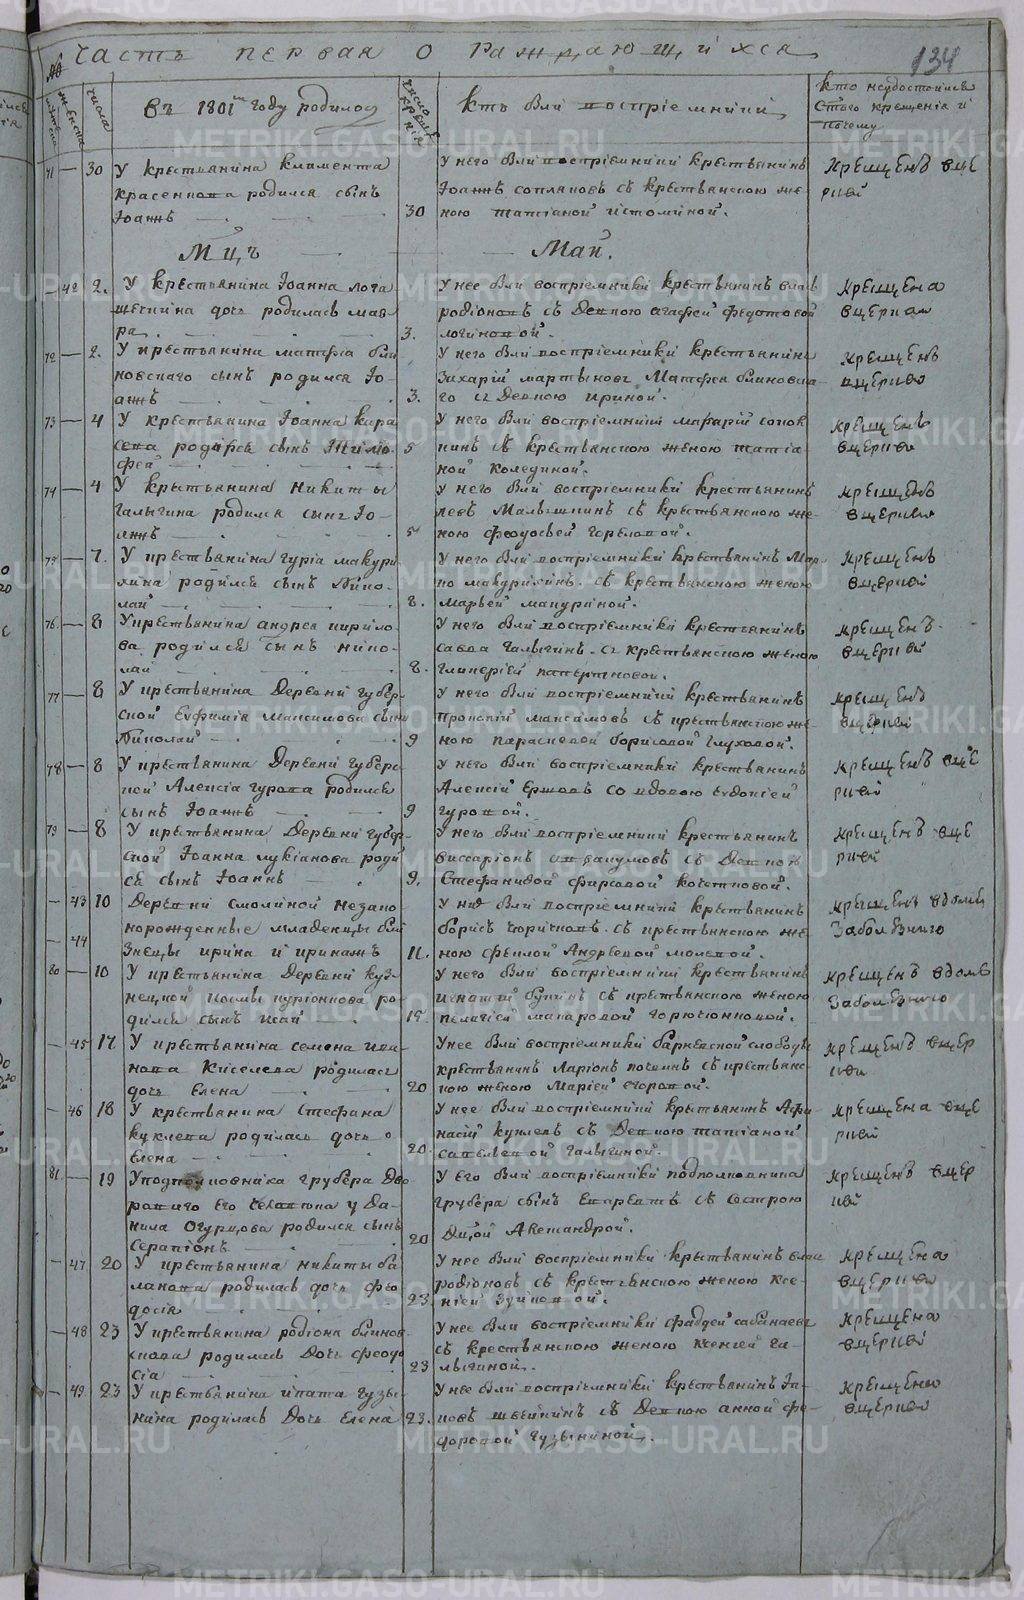 Часть первая о раждающихся
134
№
числа
Въ 1801м году родилос
число крещенія
кто были воспріемники
кто неудостоился
Стаго крещенія и
почему
71 — 30 У крестьянина климента
красеннова родился сынъ
Іоаннъ
30
У него были воспріемники крестьянинъ
Іоаннъ сопляковъ съ крестьянскою же-
ною татіаной истоминой.
крещенъ вце
ркви
Мцъ Май.
42 2. У крестьянина Іоанна лога
родилась мав
ра
3.
У нее были воспріемники крестьянинъ влас
родіоновъ съ девкою агафей федотовой
логиновой.
крещена
вцеркви
72 — 2. У крестьянина матфеа бли
новскаго сынъ родился Іо-
аннъ
3.
У него были воспріемники крестьянинъ
Захарій мартыновъ матфеа блиновска
го съ девкою ириной.
крещенъ
вцеркви
73 — 4 У крестьянина Іоанна кара
сева родился сынъ Тимо-
фей
5
У него были воспріемники
съ крестьянскою женою татіа-
ной коледіной.
крещенъ
вцеркви
74 — 4 У крестьянина никиты
галыгина родился сынъ Іо-
аннъ
5
У него были воспріемники крестьянинъ
левъ Малышкинъ съ крестьянскою же-
ною феодосьей горбловой.
крещенъ
вцеркви
75 — 7. У крестьянина гуріа макури
хина родился сынъ Нико-
лай
8.
У него были воспріемники крестьянинъ Мар-
ко макурихинъ. съ крестьянскою женою
марьей макуриной.
крещенъ
вцеркви
76. — 8 У крестьянина андреа кирило-
ва родился сынъ нико-
лай
8.
У него были воспріемники крестьянинъ
савва галыгинъ. съ крестьянскою женою
гликеріей
крещенъ
вцеркви
77 — 8 У крестьянина Деревни губер-
ской Евфиміа максимова сынъ
Николай
9
У него были воспріемники крестьянинъ
Прокопій максимовъ съ крестьянскою же-
ною параскевой борисовой глуховой.
крещенъ
вцеркви
78 — 8 У крестьянина Деревни губерс-
кой Алексіа гурова родился
сынъ Іоаннъ
9
У него были воспріемники крестьянинъ
Алексій Ершовъ со вдовою евдокіей
гуровой.
крещенъ вце
ркви
79 — 8 У крестьянина Деревни губер-
ской Іоанна лукіанова роди
ся сынъ Іоаннъ
9.
У него были воспріемники крестьянинъ
виссаріонъ съ Девкою
Стефанидой фирсовой кочетковой.
крещенъ вце
ркви
43 10 Деревни смолиной незако-
44
норожденные младенцы бли
знецы ирина и
11.
У них были воспріемники крестьянинъ
борисъ съ крестьянскою же-
ною феклой Андреевой
крещены вдоме
Заболезнию
80 — 10 У крестьянина Деревни куз-
нецкой космы ро-
дился сынъ исай
15.
У него были воспріемники крестьянинъ
игнатій съ крестьянскою женою
пелагіей макаровой
крещенъ вдоме
Заболезнию
45 17 У крестьянина семена ива-
нова Киселева родилась
дочь Елена
20
У нее были воспріемники барневской слободы
крестьянинъ Ларіонъ съ крестьянс-
кою женою Маріей егоровой.
крещена вцер
кви
46 18 У крестьянина Стефана
куклева родилась дочь
Елена
20
У нее были воспріемники крестьянинъ Афа-
насій куклевъ съ Девкою татіаной
савельевой галыгиной.
крещена вце
ркви
81. — 19 У подполковника грубера Дво
роваго его человека у Да-
нила Огурцова родился сынъ
Серапіонъ
20
У его были воспріемники подполковника
грубера сынъ съ сестрою
Алеѯандрой.
крещенъ вцер
кви
47 20 У крестьянина никиты ба
лакова родилась дочь фео
досіа
23.
У нее были воспріемники крестьянинъ влас
родіоновъ съ крестьянскою женою ксе-
ніей зуйковой.
крещена
вцеркви
48 23 У крестьянина родіона блинов-
скова родилась Дочь феодо
сіа
23
У нее были воспріемники фаддей сабанаевъ
съ крестьянскою женою ксеніей га-
лыгиной.
крещена
вцеркви
49. 23 У крестьянина ипата гузы-
нина родилась Дочь Елена
23.
У нее были воспріемники крестьянинъ Іа-
ковъ швейкинъ съ Девкою анной фе-
доровой гузыниной.
крещена
вцеркви
METRIKI.GASO-URAL.RU